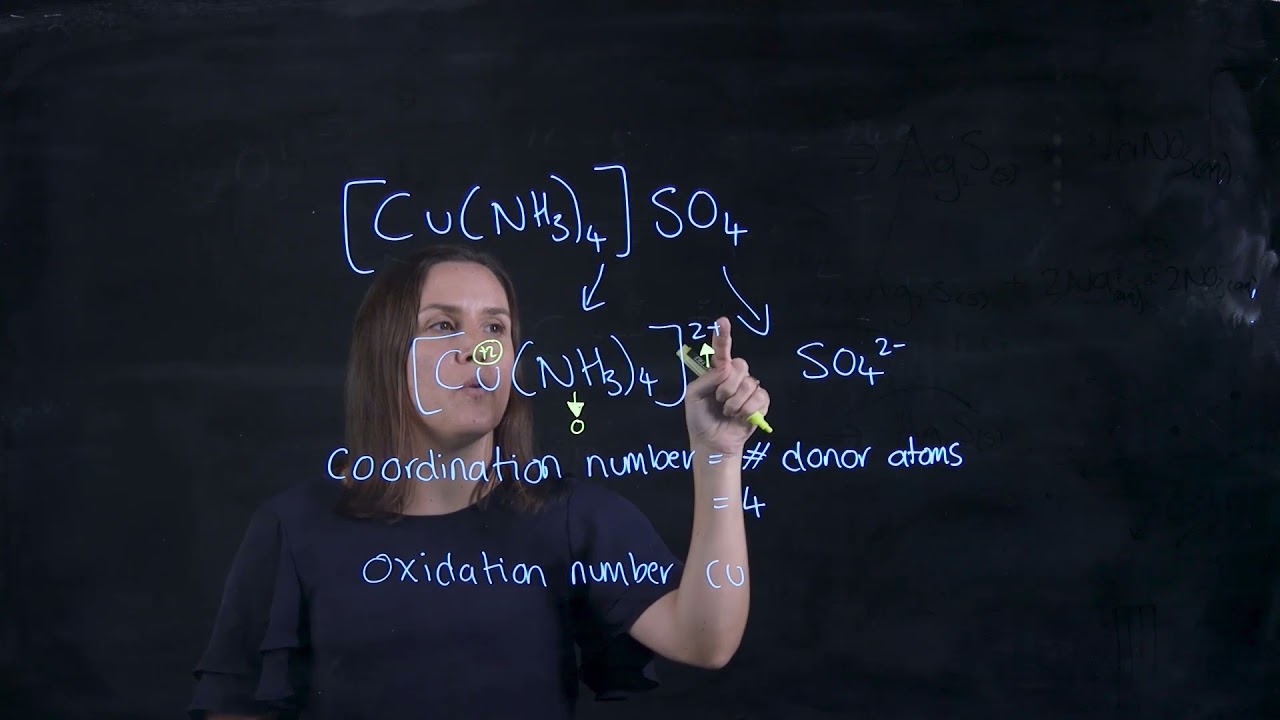 [Cu(NH3)4]SO4
[Cu(NH3)4]2+ SO42-
+2
0
Coordination number = # donor atoms
= 4
Oxidation number Cu
→ Ag2S(s) + NaNO3(aq)